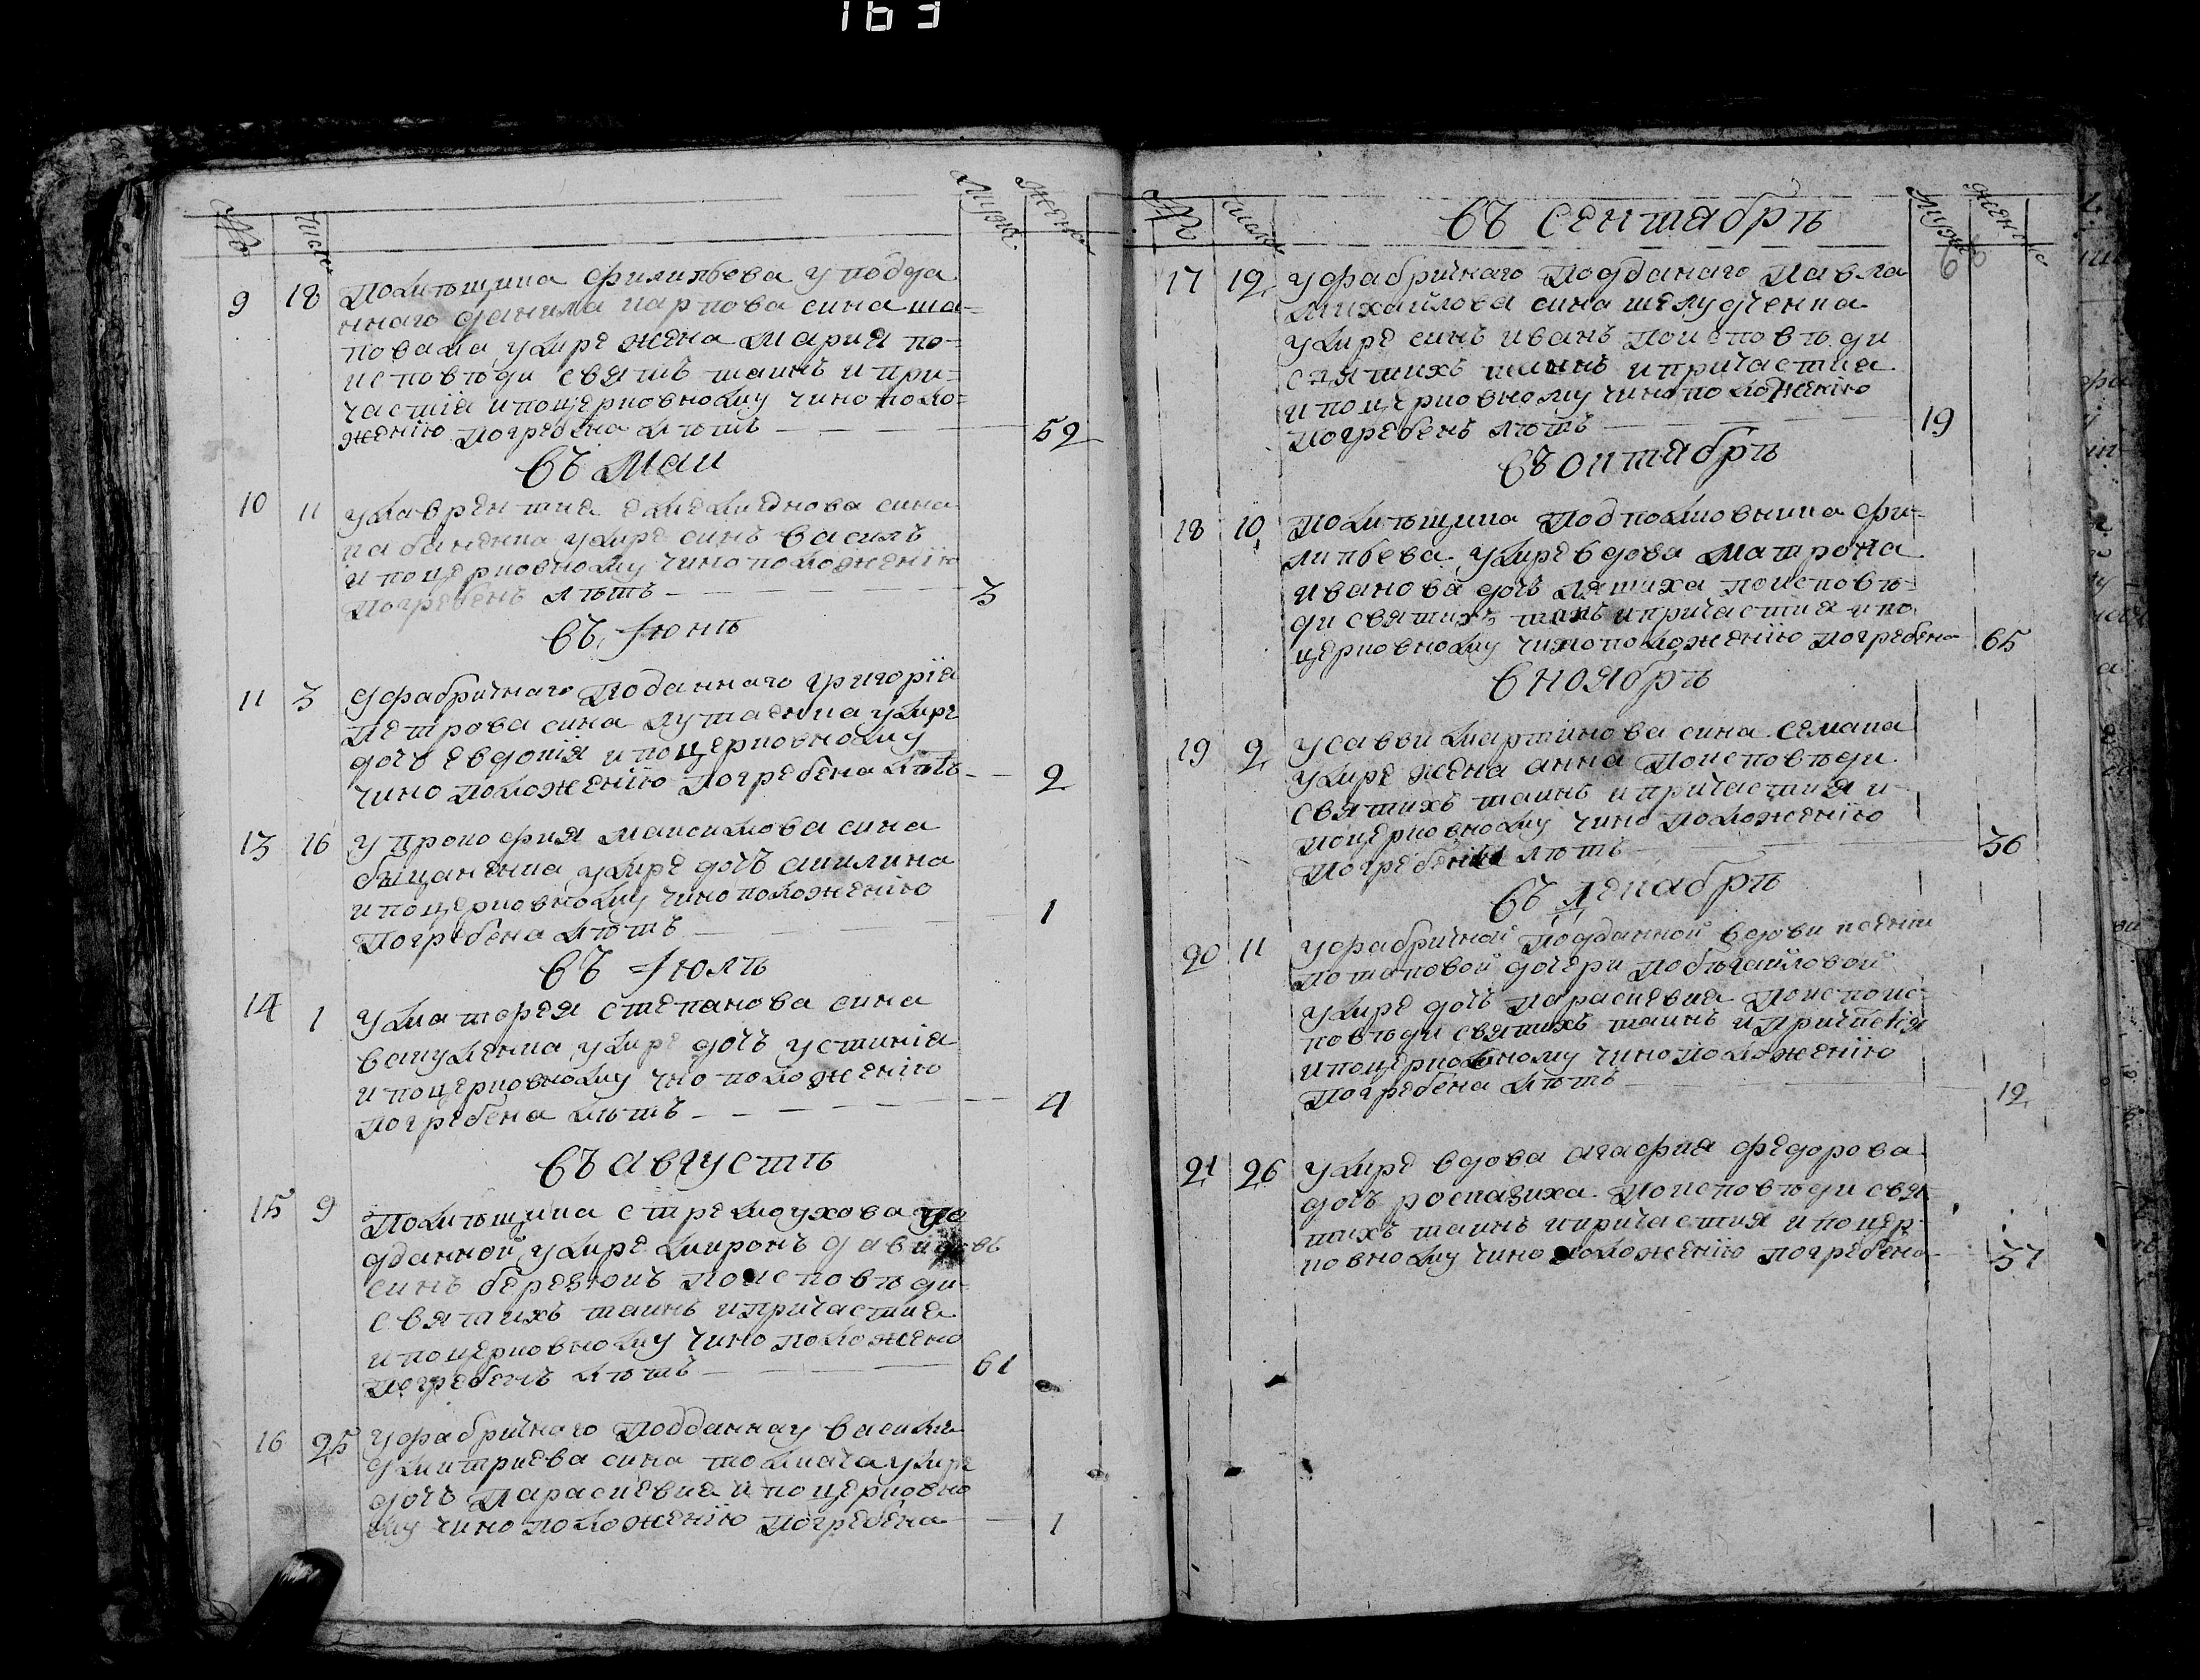 163
№ число мужс женс
9 18 Помѣщика Филипьева у подда
ннаго Данила Карпова сина ша-
повала умре жена Мария по-
исповѣди святъ таинъ и при-
частія и поцерковному чинополо-
женію погребена лѣтъ — 52
въ Маи
10 11 у Лаврентия сина
умре синъ Василь
и поцерковному чиноположенію
погребенъ лѣтъ — 3
въ Іюнѣ
11 3 Уфабричнаго Поданнаго Григорія
Петрова сина Лутаенка умре
дочъ Евдокія и поцерковному
чино положенію погребена лѣтъ — 2
13 16 у Прокофия Максимова сина
умре дочъ Акилина
и поцерковному чиноположенію
Погребена лѣтъ — 1
въ Іюлѣ
14 1 у Матфея Степанова сина
Вакуленка умре дочъ Устинія
и поцерковному чноположенію
погребена лѣтъ — 4
въ августѣ
15 9 Помѣщика Стремоухова по
дданной умре Миронъ Давидовъ
синъ Березюкъ Поисповѣди
святихъ таинъ и причастия
и поцерковному чино положено
погребенъ лѣтъ — 61
16 25 уфабричнаго Поддannaу Василия
Дмитриева сина толмача умре
дочъ Параскевия и поцерковно
му чино положенію погребена — 1
№ число въ сентябрѣ мужс женс
17 12 уфабричнаго Подданаго Павла
Михайлова сина Шелудченка
умре синъ Иванъ Поисповѣди
святихъ таинъ и причастия
и поцерковному чиноположенію
погребенъ лѣтъ — 19
въ октябрѣ
18 10 Помѣщика Подполковника Фи-
липьева умре вдова Матрона
Иванова дочъ Лятиха поисповѣ-
ди святихъ таинъ и причастия и по
церковному чиноположенію погребена 65
в ноябрѣ
19 2 у Савви Мартинова сина Семака
умре жена Анна Поисповѣди
святихъ таинъ и причастия и
поцерковному чино положенію
погребена лѣтъ — 36
въ декабрѣ
20 11 уфабричной Подданной вдови
Потаповой дочери
умре дочъ Параскевия Поиспоис-
повѣди святихъ таинъ и Причастія
и поцерковному чиноположенію
Погребена лѣтъ — 12
21 26 умре вдова Агафия Федорова
дочъ Роспазиха Поисповѣди свя-
тихъ таинъ и причастия и поцер-
ковному чино положенію погребена — 57